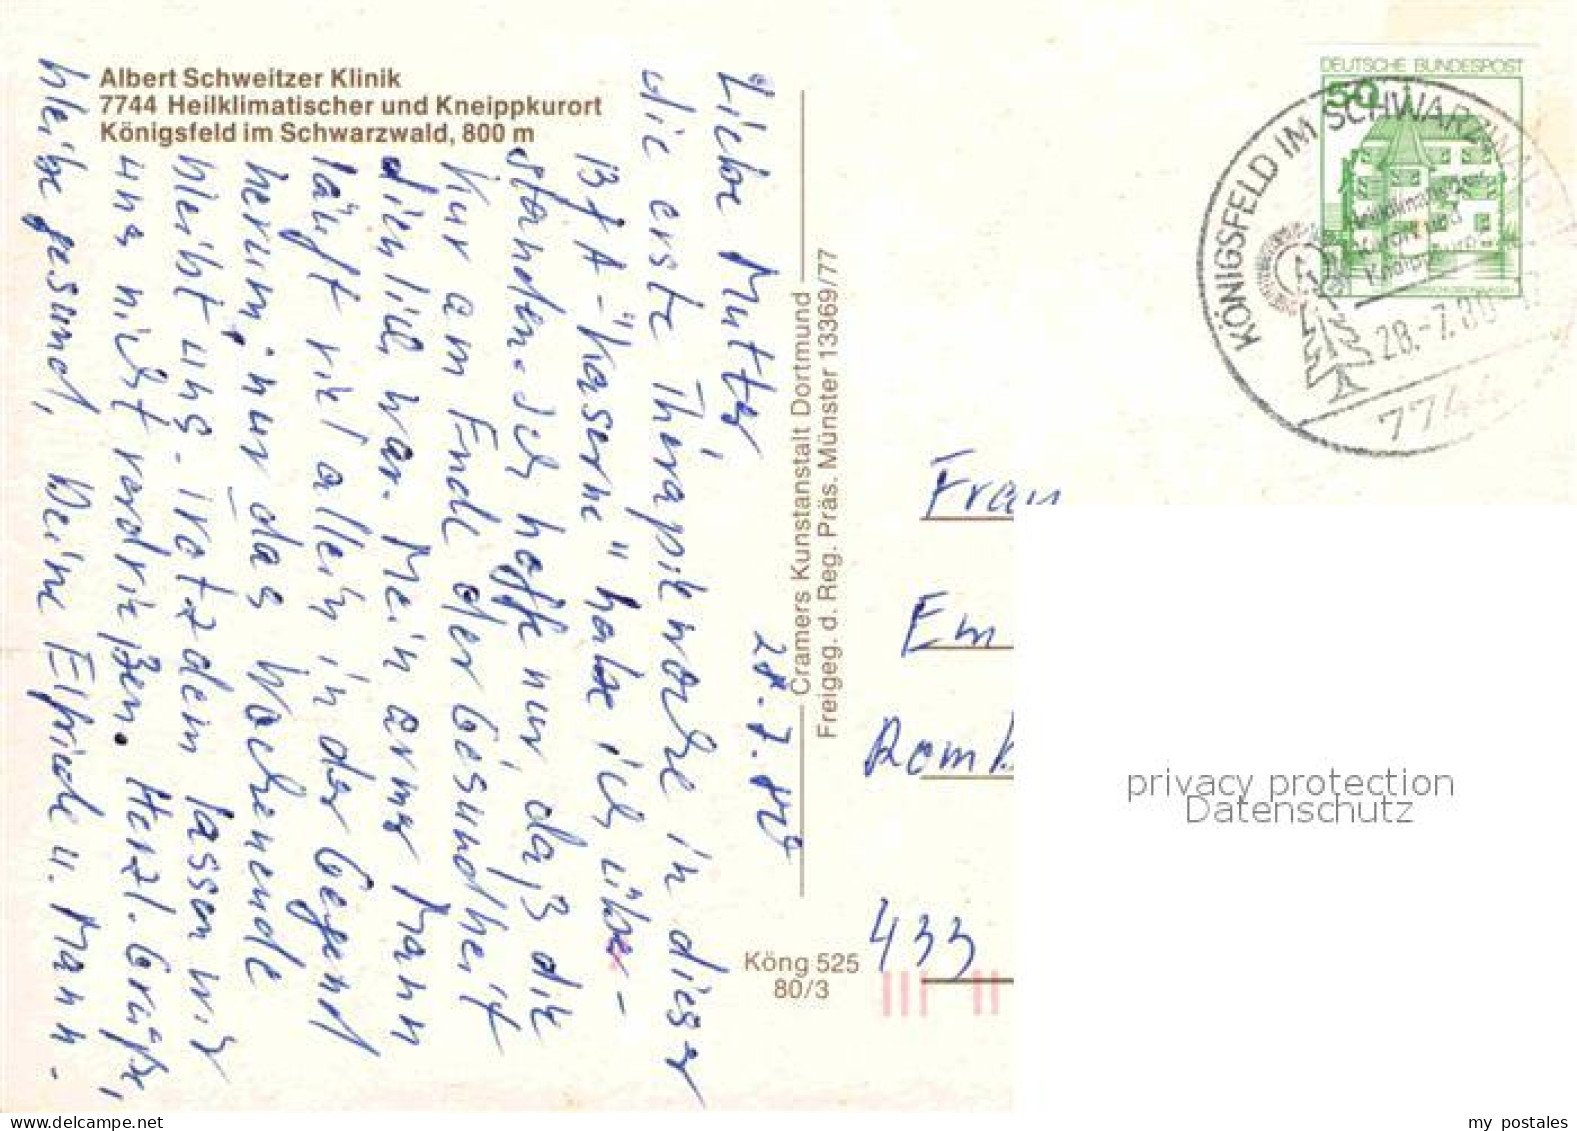 Albert Schweitzer Klinik
7744 Heilklimatischer und Kneippkurort
Königsfeld im Schwarzwald, 800 m
28.7.80
Liebe Mutter,
die erste Therapiewoche in dieser
BfA-"Kaserne" habe ich über-
standen. Ich hoffe nur, daß die
Kur am Ende der Gesundheit
dienlich war. Mein armer Mann
läuft viel allein in der Gegend
herum; nur das Wochenende
bleibt uns. Trotzdem lassen wir
uns nicht verdrießen. Herzl. Grüße,
bleibe gesund, Deine Elfriede u. Mann.
Cramers Kunstanstalt Dortmund
Freigeg. d. Reg. Präs. Münster 13369/77
Köng 525
80/3
DEUTSCHE BUNDESPOST
50
KÖNIGSFELD IM SCHWARZWALD
Heilklimatischer
Kurort und
Kneippkurort
28.-7.80
7744
Frau
Em
Romb
433
privacy protection
Datenschutz
my postales